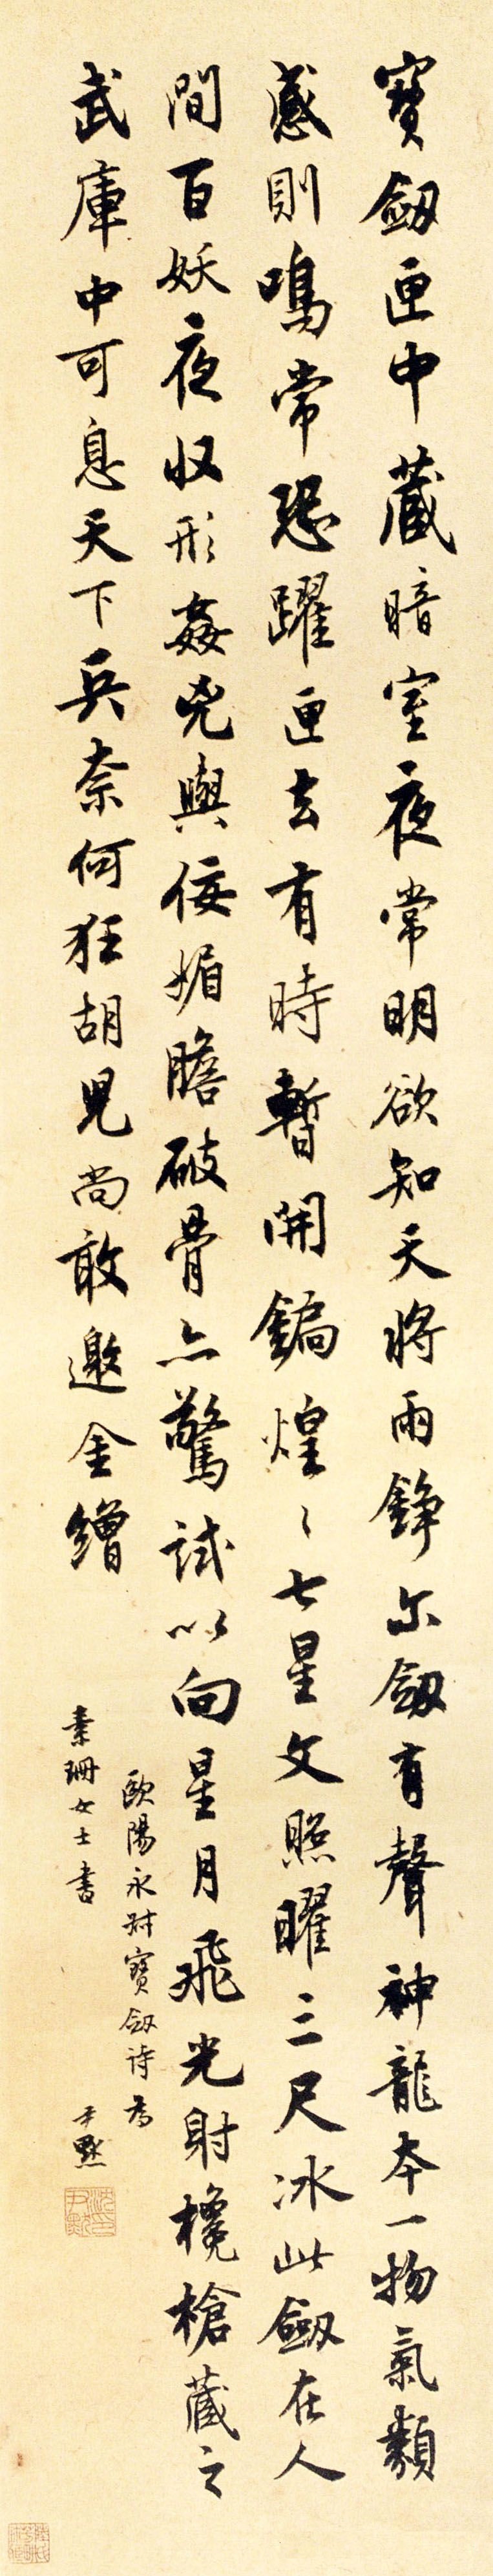 寶劔匣中藏暗室夜常明欲知天將雨錚尔劔有聲神龍本一物氣類
感則鳴常恐躍匣去有時暫開鐍煌〻七星文照曜三尺冰此劔在人
間百妖夜収形姦兇與佞媚膽破骨亦驚試以向星月飛光射欃槍藏之
武庫中可息天下兵奈何狂胡兒尚敢邀金繒
歐陽永叔寶劔诗為
素珊女士書
尹默
沈氏尹默